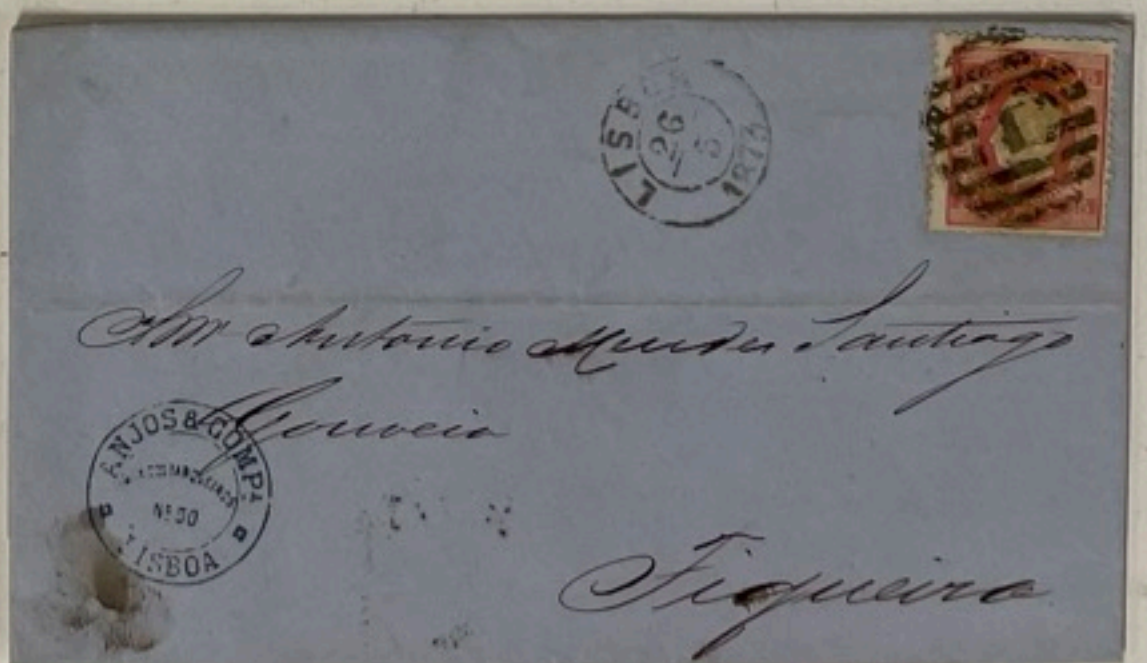 LISBOA
26
5
1873
Snr Antonio Mendes Santiago
Gouveia
ANJOS & COMPA
Nº 30
LISBOA
Figueira